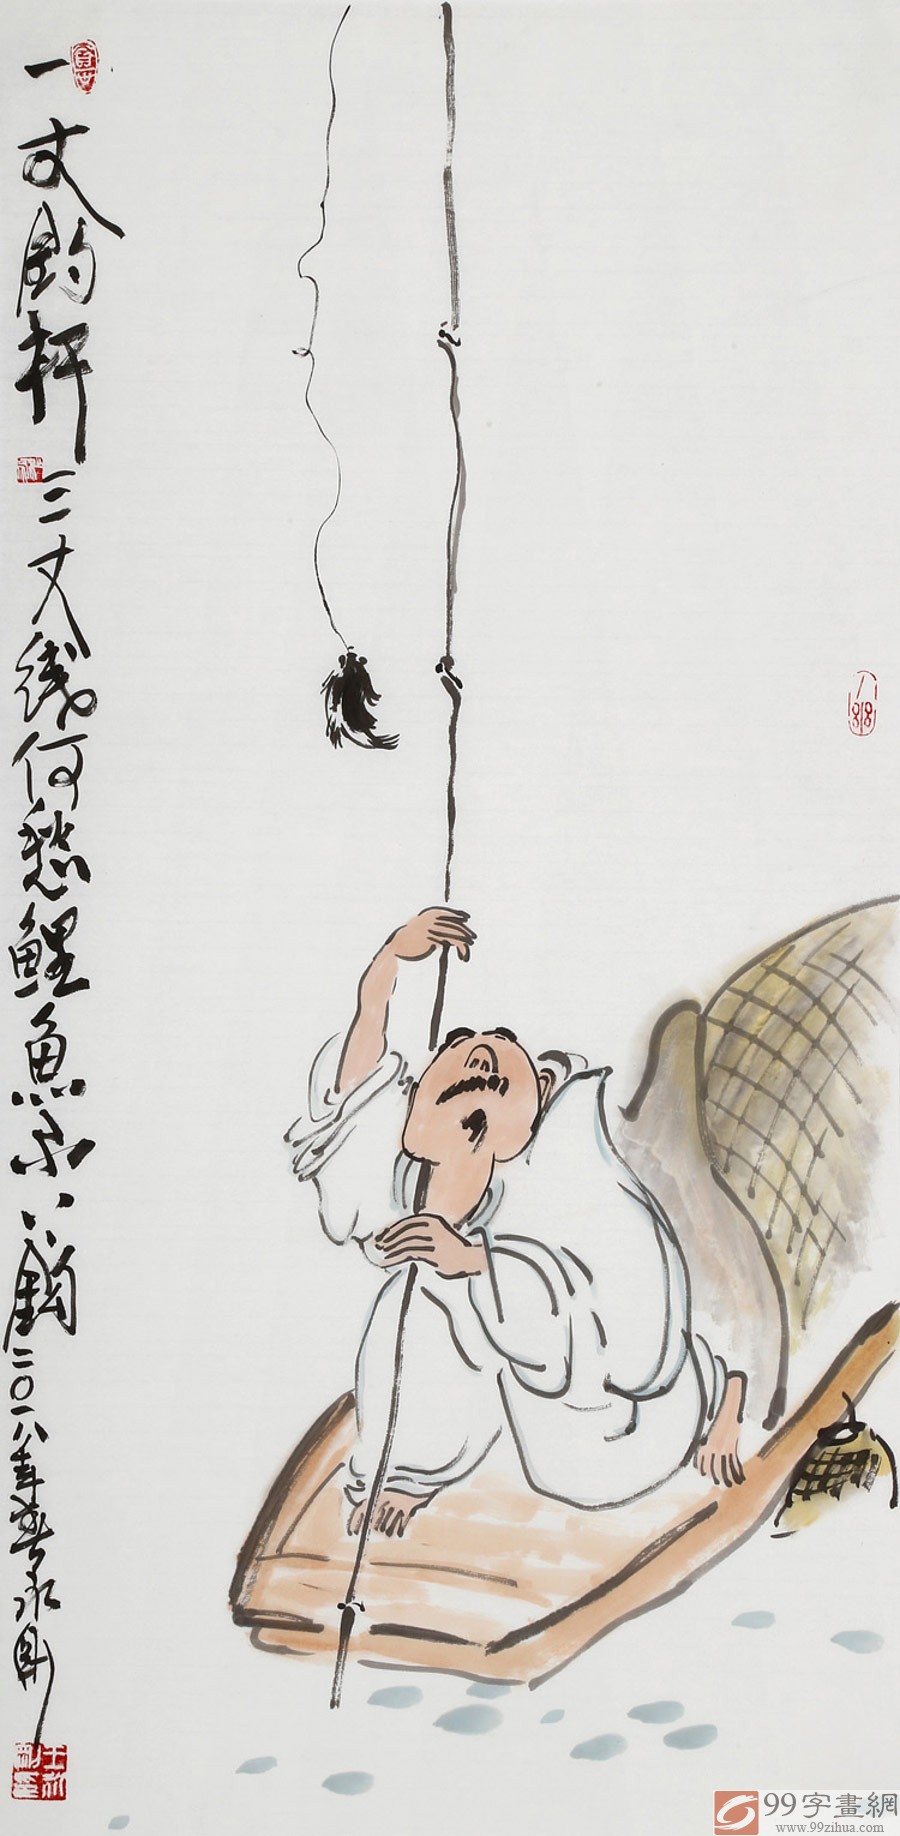 一丈釣杆三丈线何愁鲤魚不上鈎二〇一八年春永刚
99字畫網
www.99zihua.com